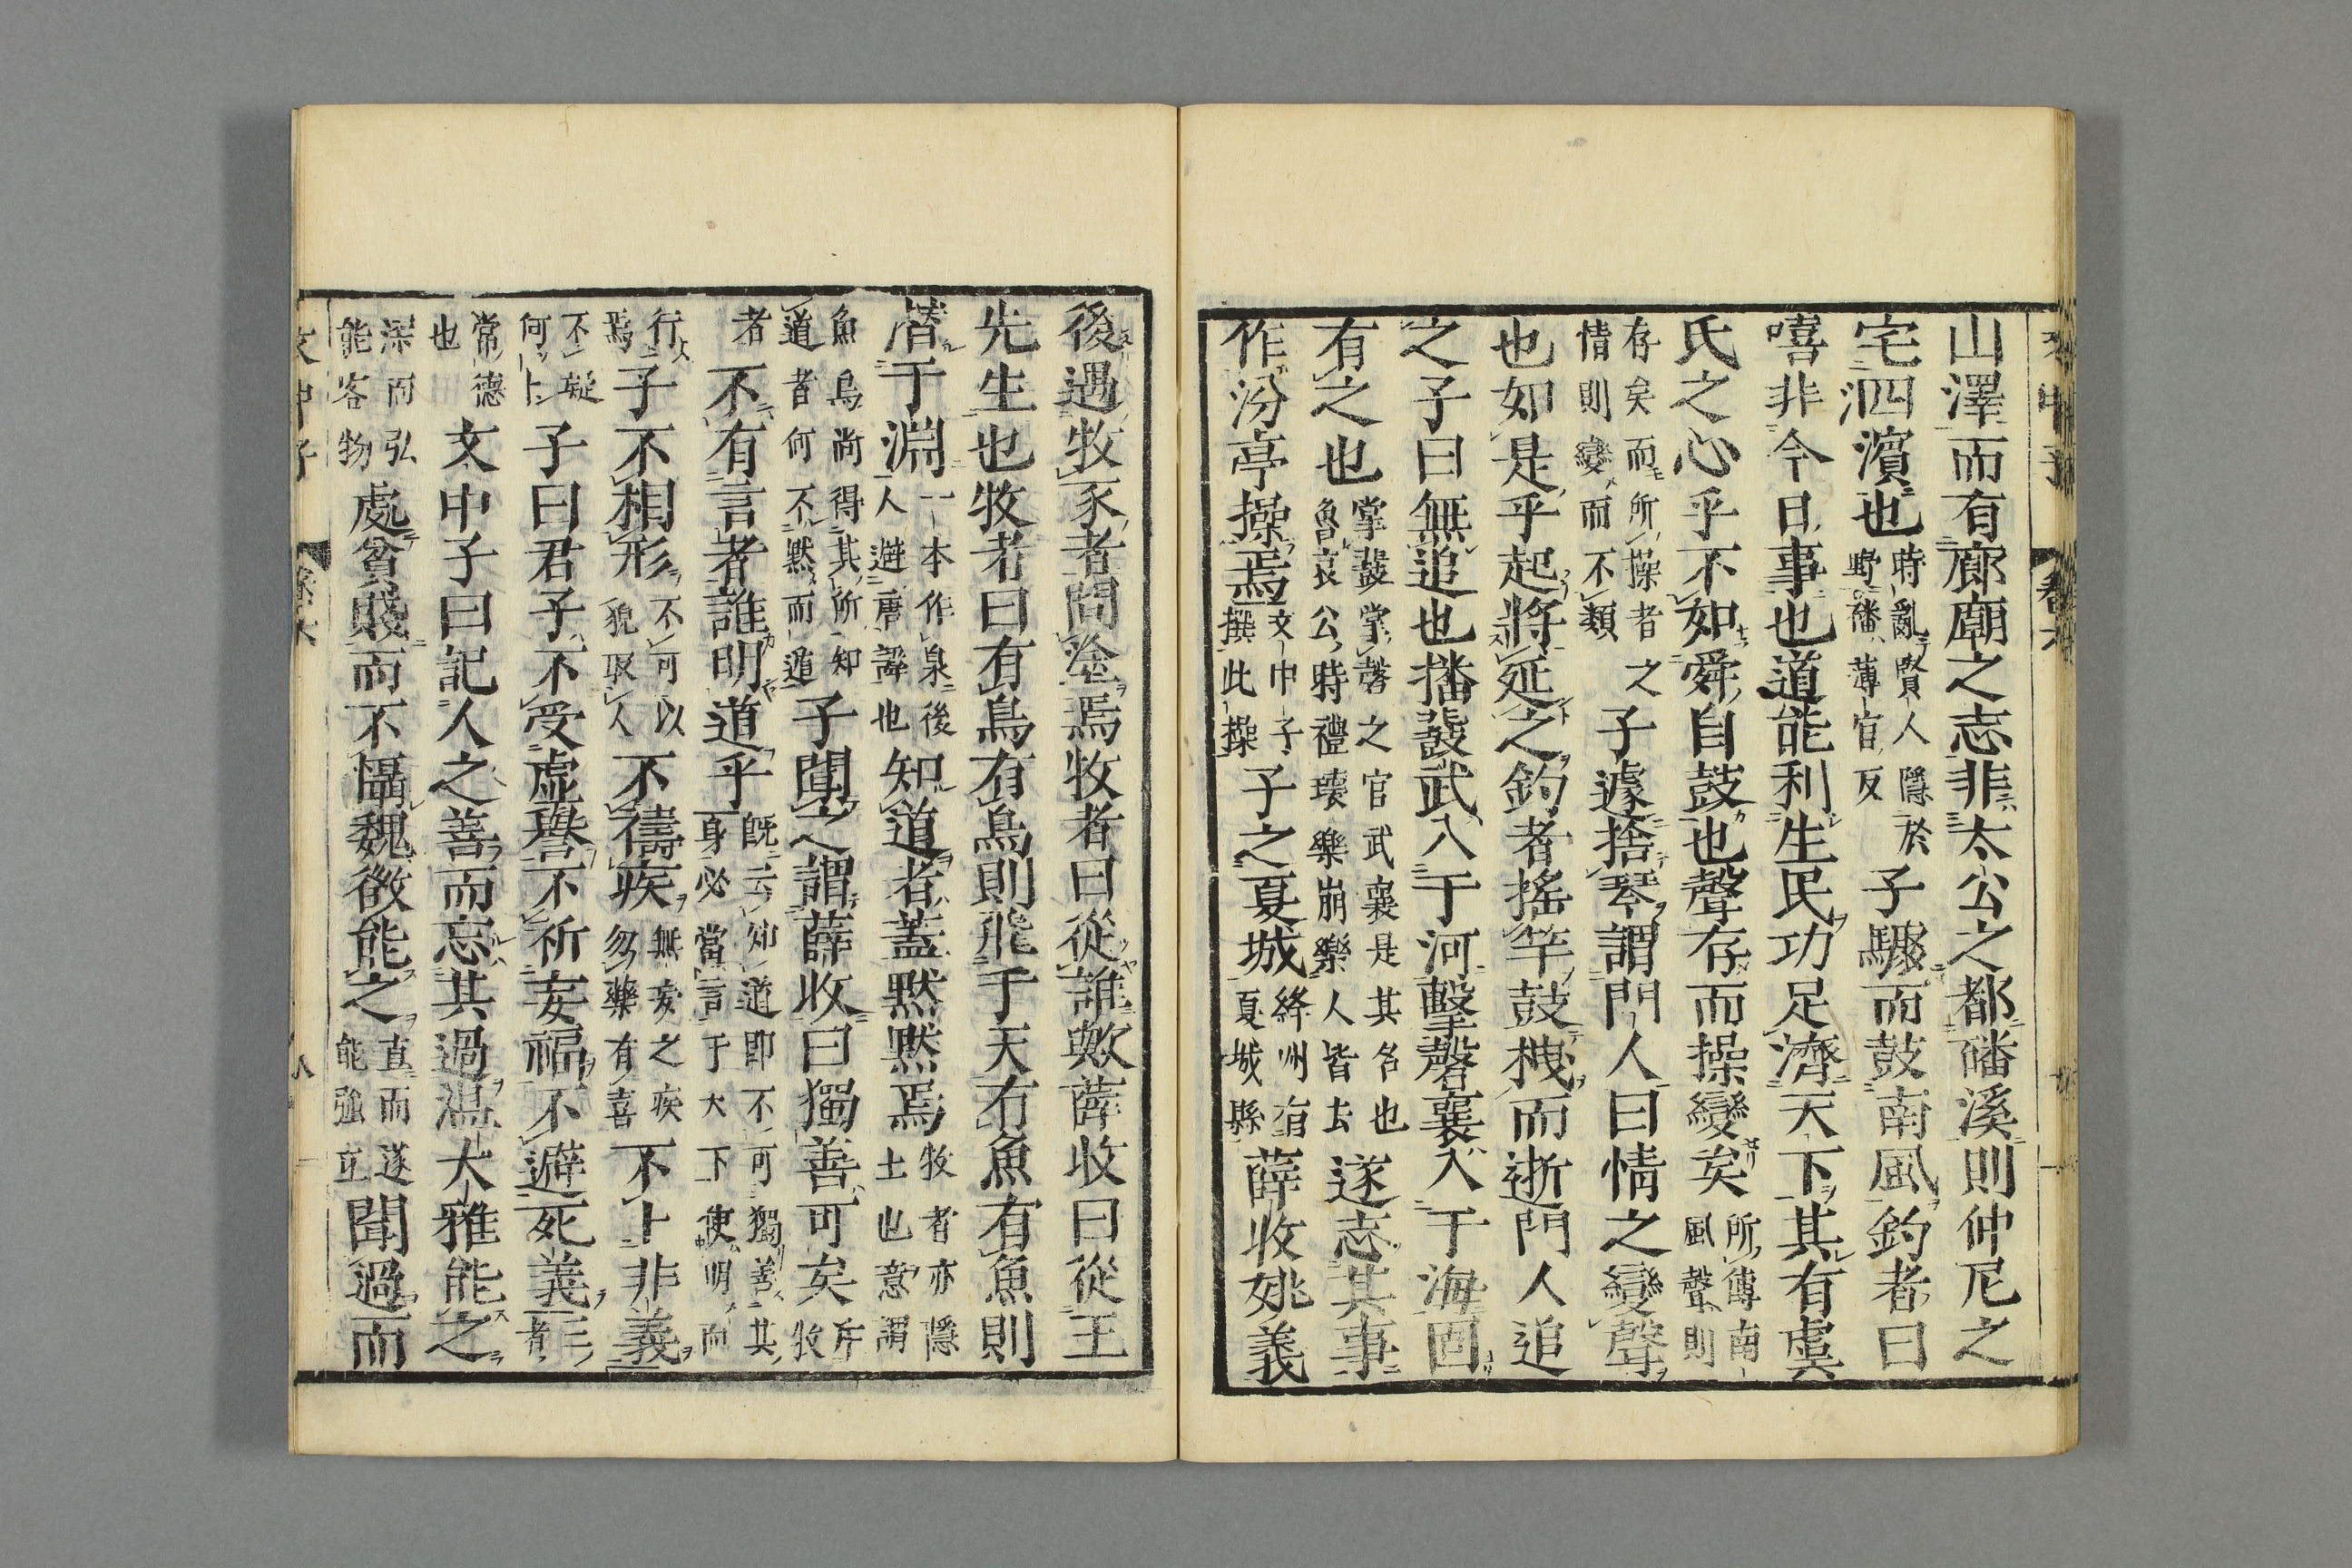 山澤而有廊廟之志非太公之都磻溪則仲尼之
宅泗濱也時亂賢人隱於野磻薄官反子驟而鼓南風釣者曰
嘻非今日事也道能利生民功足濟天下其有虞
氏之心乎不如舜自鼓也聲存而操變矣所傳南風聲則
存矣而所操者之情則變而不類子遽捨琴謂門人曰情之變聲
也如是乎起將延之釣者搖竿鼓栧而逝門人追
之子曰無追也播鼗武入于河擊磬襄入于海固
有之也掌鼗掌磬之官武襄是其名也魯哀公時禮壞樂崩樂人皆去遂志其事
作汾亭操焉文中子撰此操子之夏城絳州有夏城縣薛收姚義
後遇牧豕者問塗焉牧者曰從誰歟薛收曰從王
先生也牧者曰有鳥有鳥則飛于天有魚有魚則
潛于淵一本作泉後人避唐諱也知道者蓋默默焉牧者亦隱士也意謂
魚鳥尚得其所知道者何不默而遁子聞之謂薛收曰獨善可矣斥牧
者不有言者誰明道乎既云知道即不可獨善其身必當言于天下使明而
行焉子不相形不可以貌取人不禱疾無妄之疾勿藥有喜不卜非義
不疑何卜子曰君子不受虛譽不祈妄福不避死義三者
常德也文中子曰記人之善而忘其過溫大雅能之
深而弘能容物處貧賤而不懾魏徵能之直而遂能強立聞過而